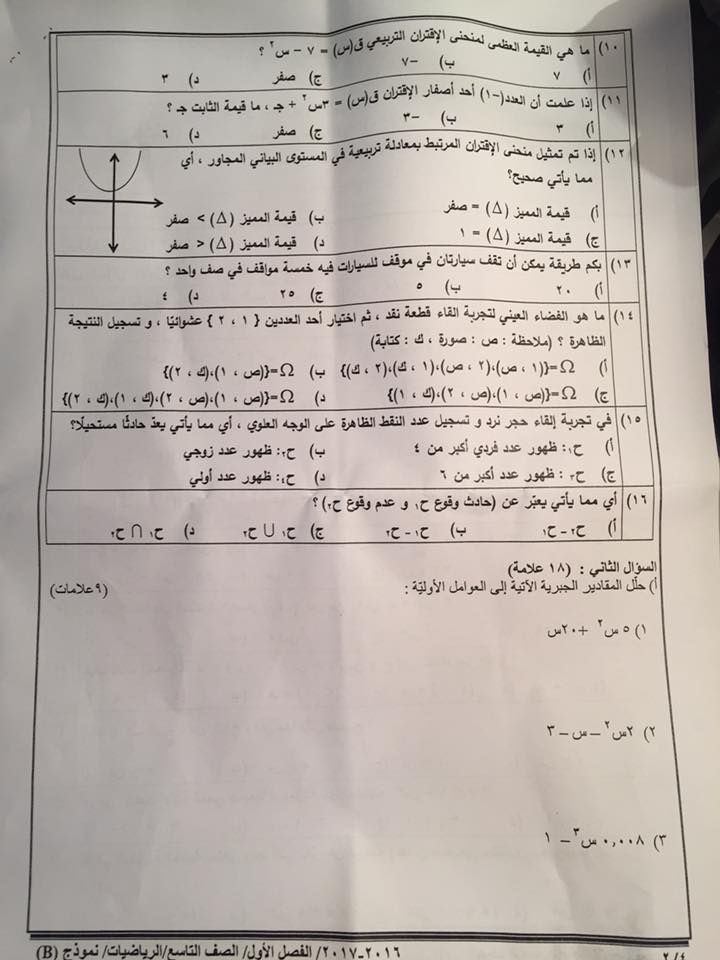 ١٠) ما هي القيمة العظمى لمنحنى الإقتران التربيعي ق(س) = ٧ – س٢ ؟
أ) ٧ ب) –٧ ج) صفر د) ٣
١١) إذا علمت أن العدد(–١) أحد أصفار الإقتران ق(س) = ٣س٢ + جـ ، ما قيمة الثابت جـ ؟
أ) ٣ ب) –٣ ج) صفر د) ٦
١٢) إذا تم تمثيل منحنى الإقتران المرتبط بمعادلة تربيعية في المستوى البياني المجاور ، أي
مما يأتي صحيح؟
أ) قيمة المميز (Δ) = صفر ب) قيمة المميز (Δ) > صفر
ج) قيمة المميز (Δ) = ١ د) قيمة المميز (Δ) < صفر
١٣) بكم طريقة يمكن أن تقف سيارتان في موقف للسيارات فيه خمسة مواقف في صف واحد ؟
أ) ٢٠ ب) ٥ ج) ٢٥ د) ٤
١٤) ما هو الفضاء العيني لتجربة القاء قطعة نقد ، ثم اختيار أحد العددين { ١ ، ٢ } عشوائيًا ، و تسجيل النتيجة
الظاهرة ؟ (ملاحظة : ص : صورة ، ك : كتابة)
أ) Ω={(١ ، ص)،(٢ ، ص)،(١ ، ك)،(٢ ، ك)} ب) Ω={(ص ، ١)،(ك ، ٢)}
ج) Ω={(ص ، ١)،(ص ، ٢)،(ك ، ١)} د) Ω={(ص ، ١)،(ص ، ٢)،(ك ، ١)،(ك ، ٢)}
١٥) في تجربة إلقاء حجر نرد و تسجيل عدد النقط الظاهرة على الوجه العلوي ، أي مما يأتي يعدّ حادثًا مستحيلًا؟
أ) ح١: ظهور عدد فردي أكبر من ٤ ب) ح٢: ظهور عدد زوجي
ج) ح٣ : ظهور عدد أكبر من ٦ د) ح٤: ظهور عدد أولي
١٦) أي مما يأتي يعبّر عن (حادث وقوع ح١ و عدم وقوع ح٢) ؟
أ) ح٢ – ح١ ب) ح١ – ح٢ ج) ح١ ∪ ح٢ د) ح١ ∩ ح٢
السؤال الثاني : (١٨ علامة)
أ) حلّل المقادير الجبرية الآتية إلى العوامل الأوليّة : (٩ علامات)
١) ٥ س٢ + ٢٠س
٢) ٢س٢ – س – ٣
٣) ٠,٠٠٨ س٣ – ١
٢ / ٤ ٢٠١٦-٢٠١٧/ الفصل الأول/ الصف التاسع/الرياضيات/ نموذج (B)